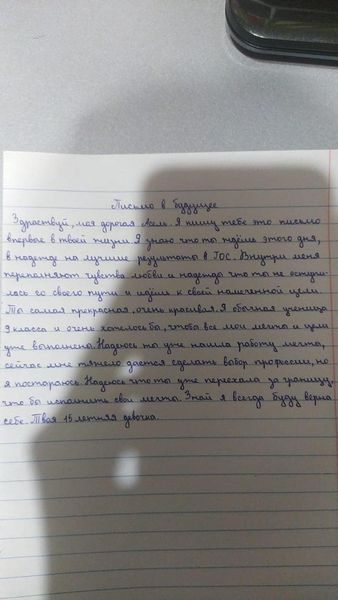 Письмо в будущее
Здраствуй, моя дорогая Асем. Я пишу тебе это письмо
впервые в твоей жизни. Я знаю что ты ждёшь этого дня,
в надежде на лучшие результаты в ГОС. Внутри меня
переполняют чувства любви и надежда что ты не оступи-
лось со своего пути и идёшь к своей намеченной цели.
Ты самая прекрасная, очень красивая. Я обычная ученица
9 класса и очень хотелось бы, чтобы все мои мечты и цели
уже выполнена. Надеюсь ты уже нашла работу мечты,
сейчас мне тяжело дается сделать выбор профессии, но
я постораюсь. Надеюсь что ты уже переехала за границу,
что бы исполнить свои мечты. Знай я всегда буду верна
себе. Твоя 15 летняя девочка.